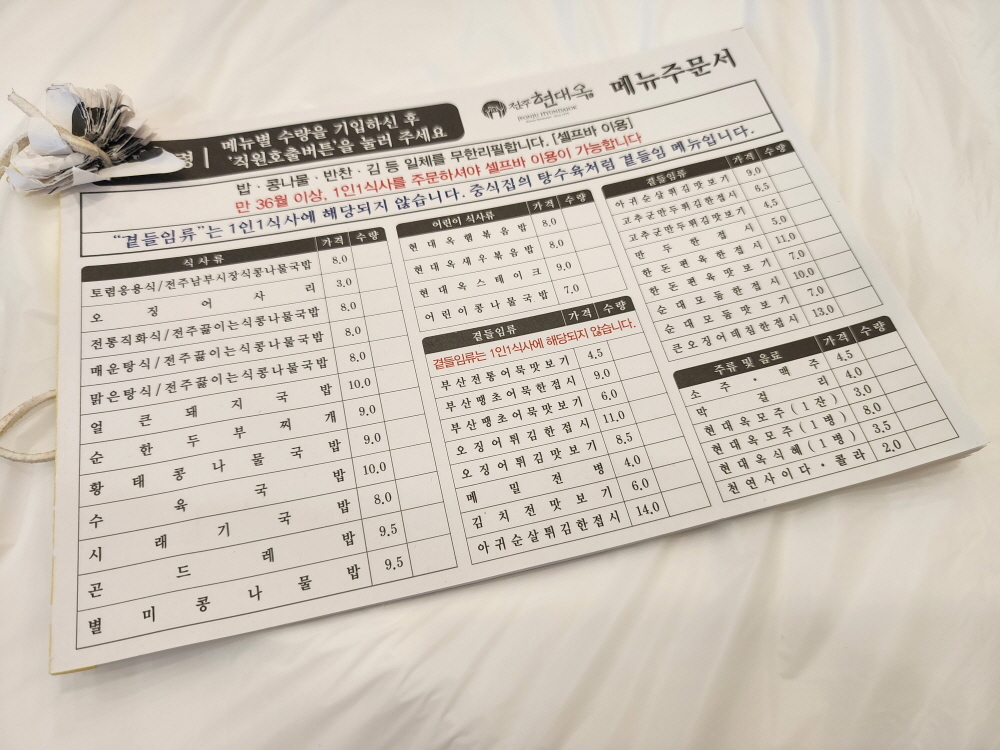 메뉴별 수량을 기입하신 후
'직원호출버튼'을 눌러 주세요
전주현대옥
JEONJU HYUNDAIOK
메뉴주문서
밥 · 콩나물 · 반찬 · 김 등 일체를 무한리필합니다. [셀프바 이용]
만 36개월 이상, 1인1식사를 주문하셔야 셀프바 이용이 가능합니다
"곁들임류"는 1인1식사에 해당되지 않습니다. 중식집의 탕수육처럼 곁들임 메뉴입니다.
식사류 가격 수량
토렴응용식/전주남부시장식콩나물국밥 8.0
오징어사리 3.0
전통직화식/전주끓이는식콩나물국밥 8.0
매운탕식/전주끓이는식콩나물국밥 8.0
맑은탕식/전주끓이는식콩나물국밥 8.0
얼큰돼지국밥 10.0
순한두부찌개 9.0
황태콩나물국밥 9.0
수육국밥 10.0
시래기국밥 8.0
곤드레밥 9.5
별미콩나물밥 9.5
어린이 식사류 가격 수량
현대옥햄볶음밥 8.0
현대옥새우볶음밥 8.0
현대옥스테이크 9.0
어린이콩나물국밥 7.0
곁들임류 가격 수량
곁들임류는 1인1식사에 해당되지 않습니다.
부산전통어묵맛보기 4.5
부산땡초어묵한접시 9.0
부산땡초어묵맛보기 6.0
오징어튀김한접시 11.0
오징어튀김맛보기 8.5
메밀전병 4.0
김치전맛보기 6.0
아귀순살튀김한접시 14.0
곁들임류 가격 수량
아귀순살튀김맛보기 9.0
고추군만두튀김한접시 6.5
고추군만두튀김맛보기 4.5
만두한접시 5.0
한돈편육한접시 11.0
한돈편육맛보기 7.0
순대모둠한접시 10.0
순대모둠맛보기 7.0
큰오징어데침한접시 13.0
주류 및 음료 가격 수량
소주·맥주 4.5
막걸리 4.0
현대옥모주(1잔) 3.0
현대옥모주(1병) 8.0
현대옥식혜(1병) 3.5
천연사이다·콜라 2.0